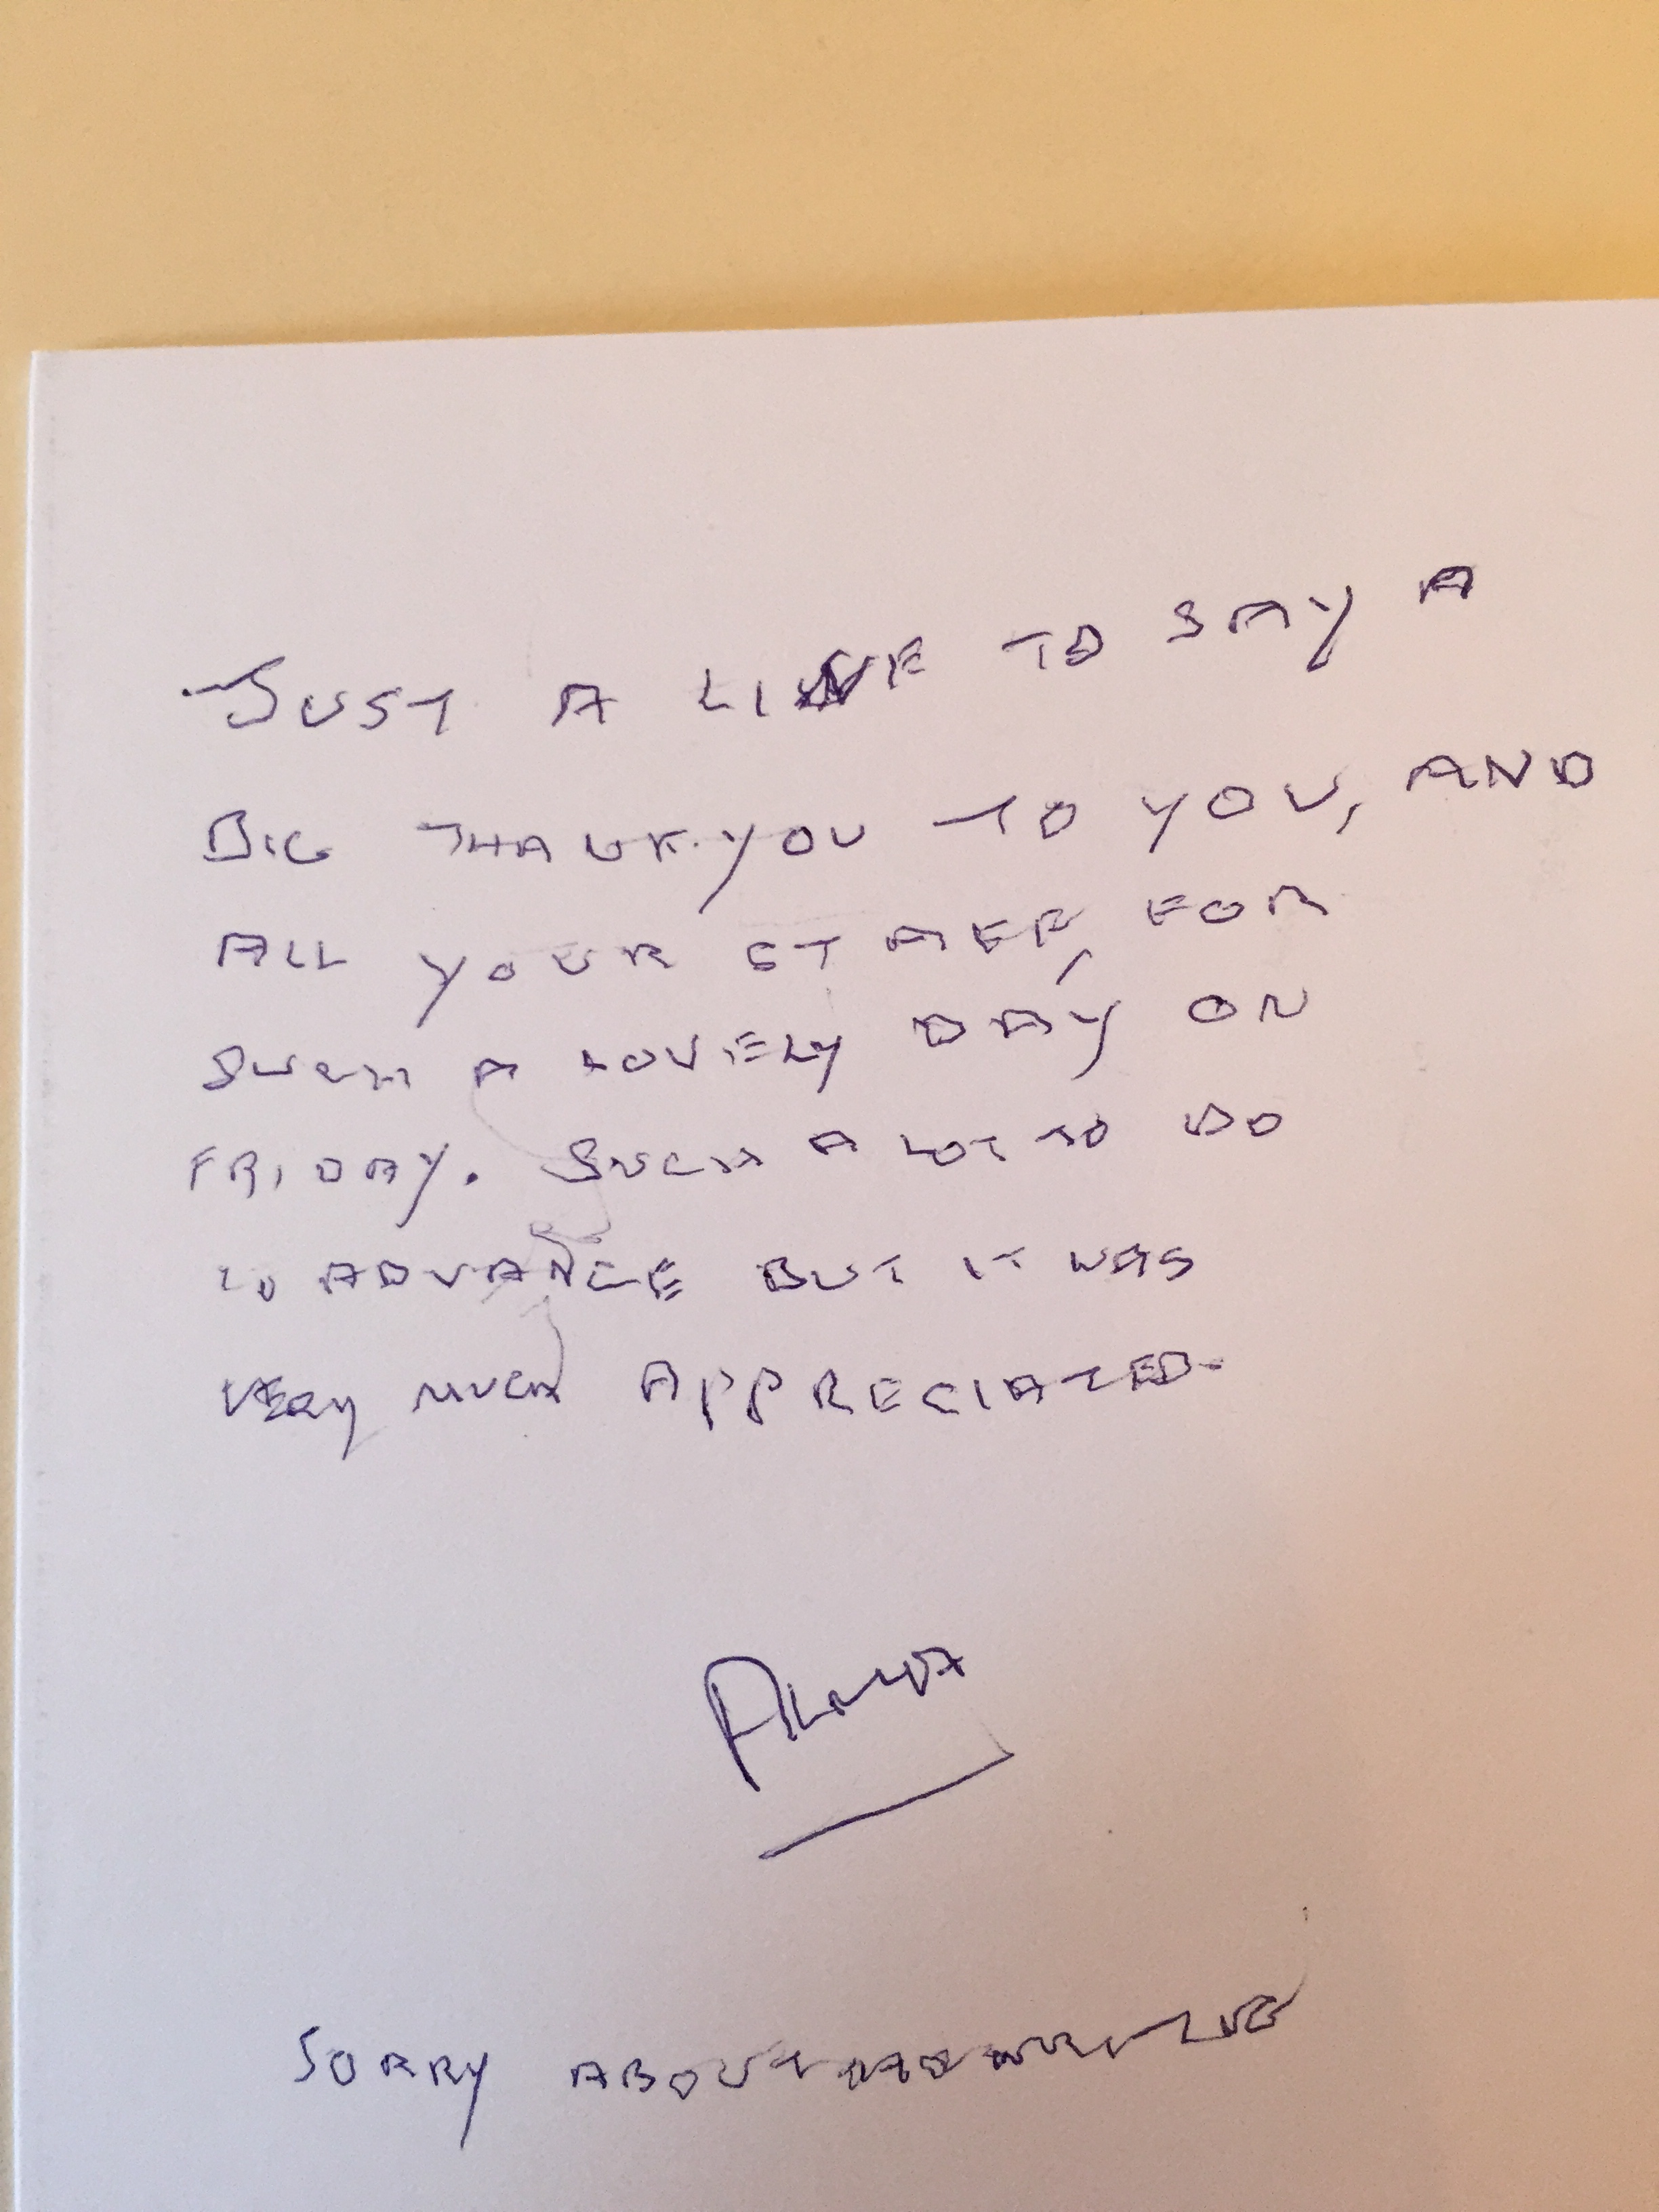 JUST A LINE TO SAY A
BIG THANK.YOU TO YOU, AND
ALL YOUR STAFF, FOR
SUCH A LOVELY DAY ON
FRIDAY. SUCH A LOT TO DO
IN ADVANCE BUT IT WAS
VERY MUCH APPRECIATED.
SORRY ABOUT BAD WRITING